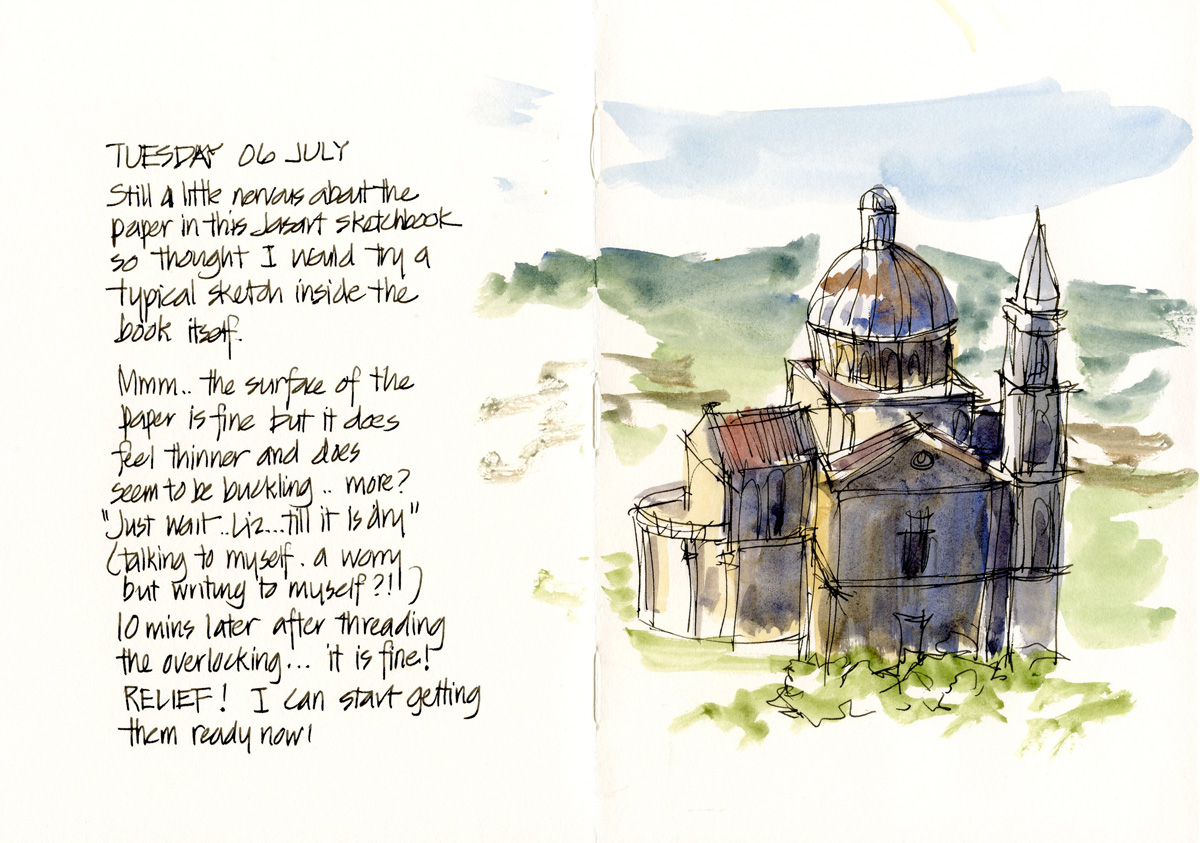 TUESDAY 06 JULY
Still a little nervous about the
paper in this Jasart sketchbook
so thought I would try a
typical sketch inside the
book itself.
Mmm.. the surface of the
paper is fine but it does
feel thinner and does
seem to be buckling .. more?
"Just wait..Liz...till it is dry"
(talking to myself. a worry
but writing to myself?!!)
10 mins later after threading
the overlocking... it is fine!
RELIEF! I can start getting
them ready now!